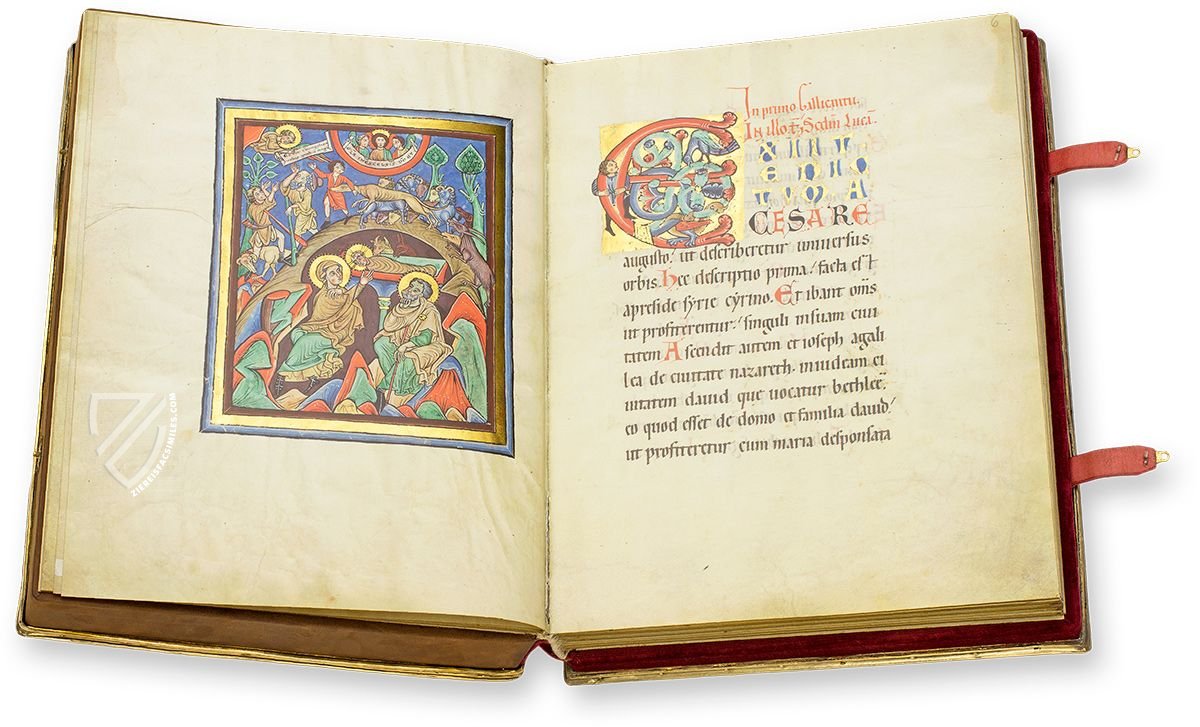 ZIEREISFACSIMILES.COM
6
In primo Gallicantu.
In illo t̄ꝫ Scdm̄ Lucā.
EXIIT
EDIC
TUM A
CESARE
augusto, ut describeretur uniuersus
orbis. Hec descriptio prima, facta est
apreside syrie cyrino. Et ibant om̄s
ut profiterentur, singuli insuam ciui
tatem Ascendit autem et ioseph agali
lea de ciuitate nazareth, iniudeam ci
uitatem dauid que uocatur bethleē,
eo quod esset de domo et familia dauid,
ut profiteretur cum maria desponsata